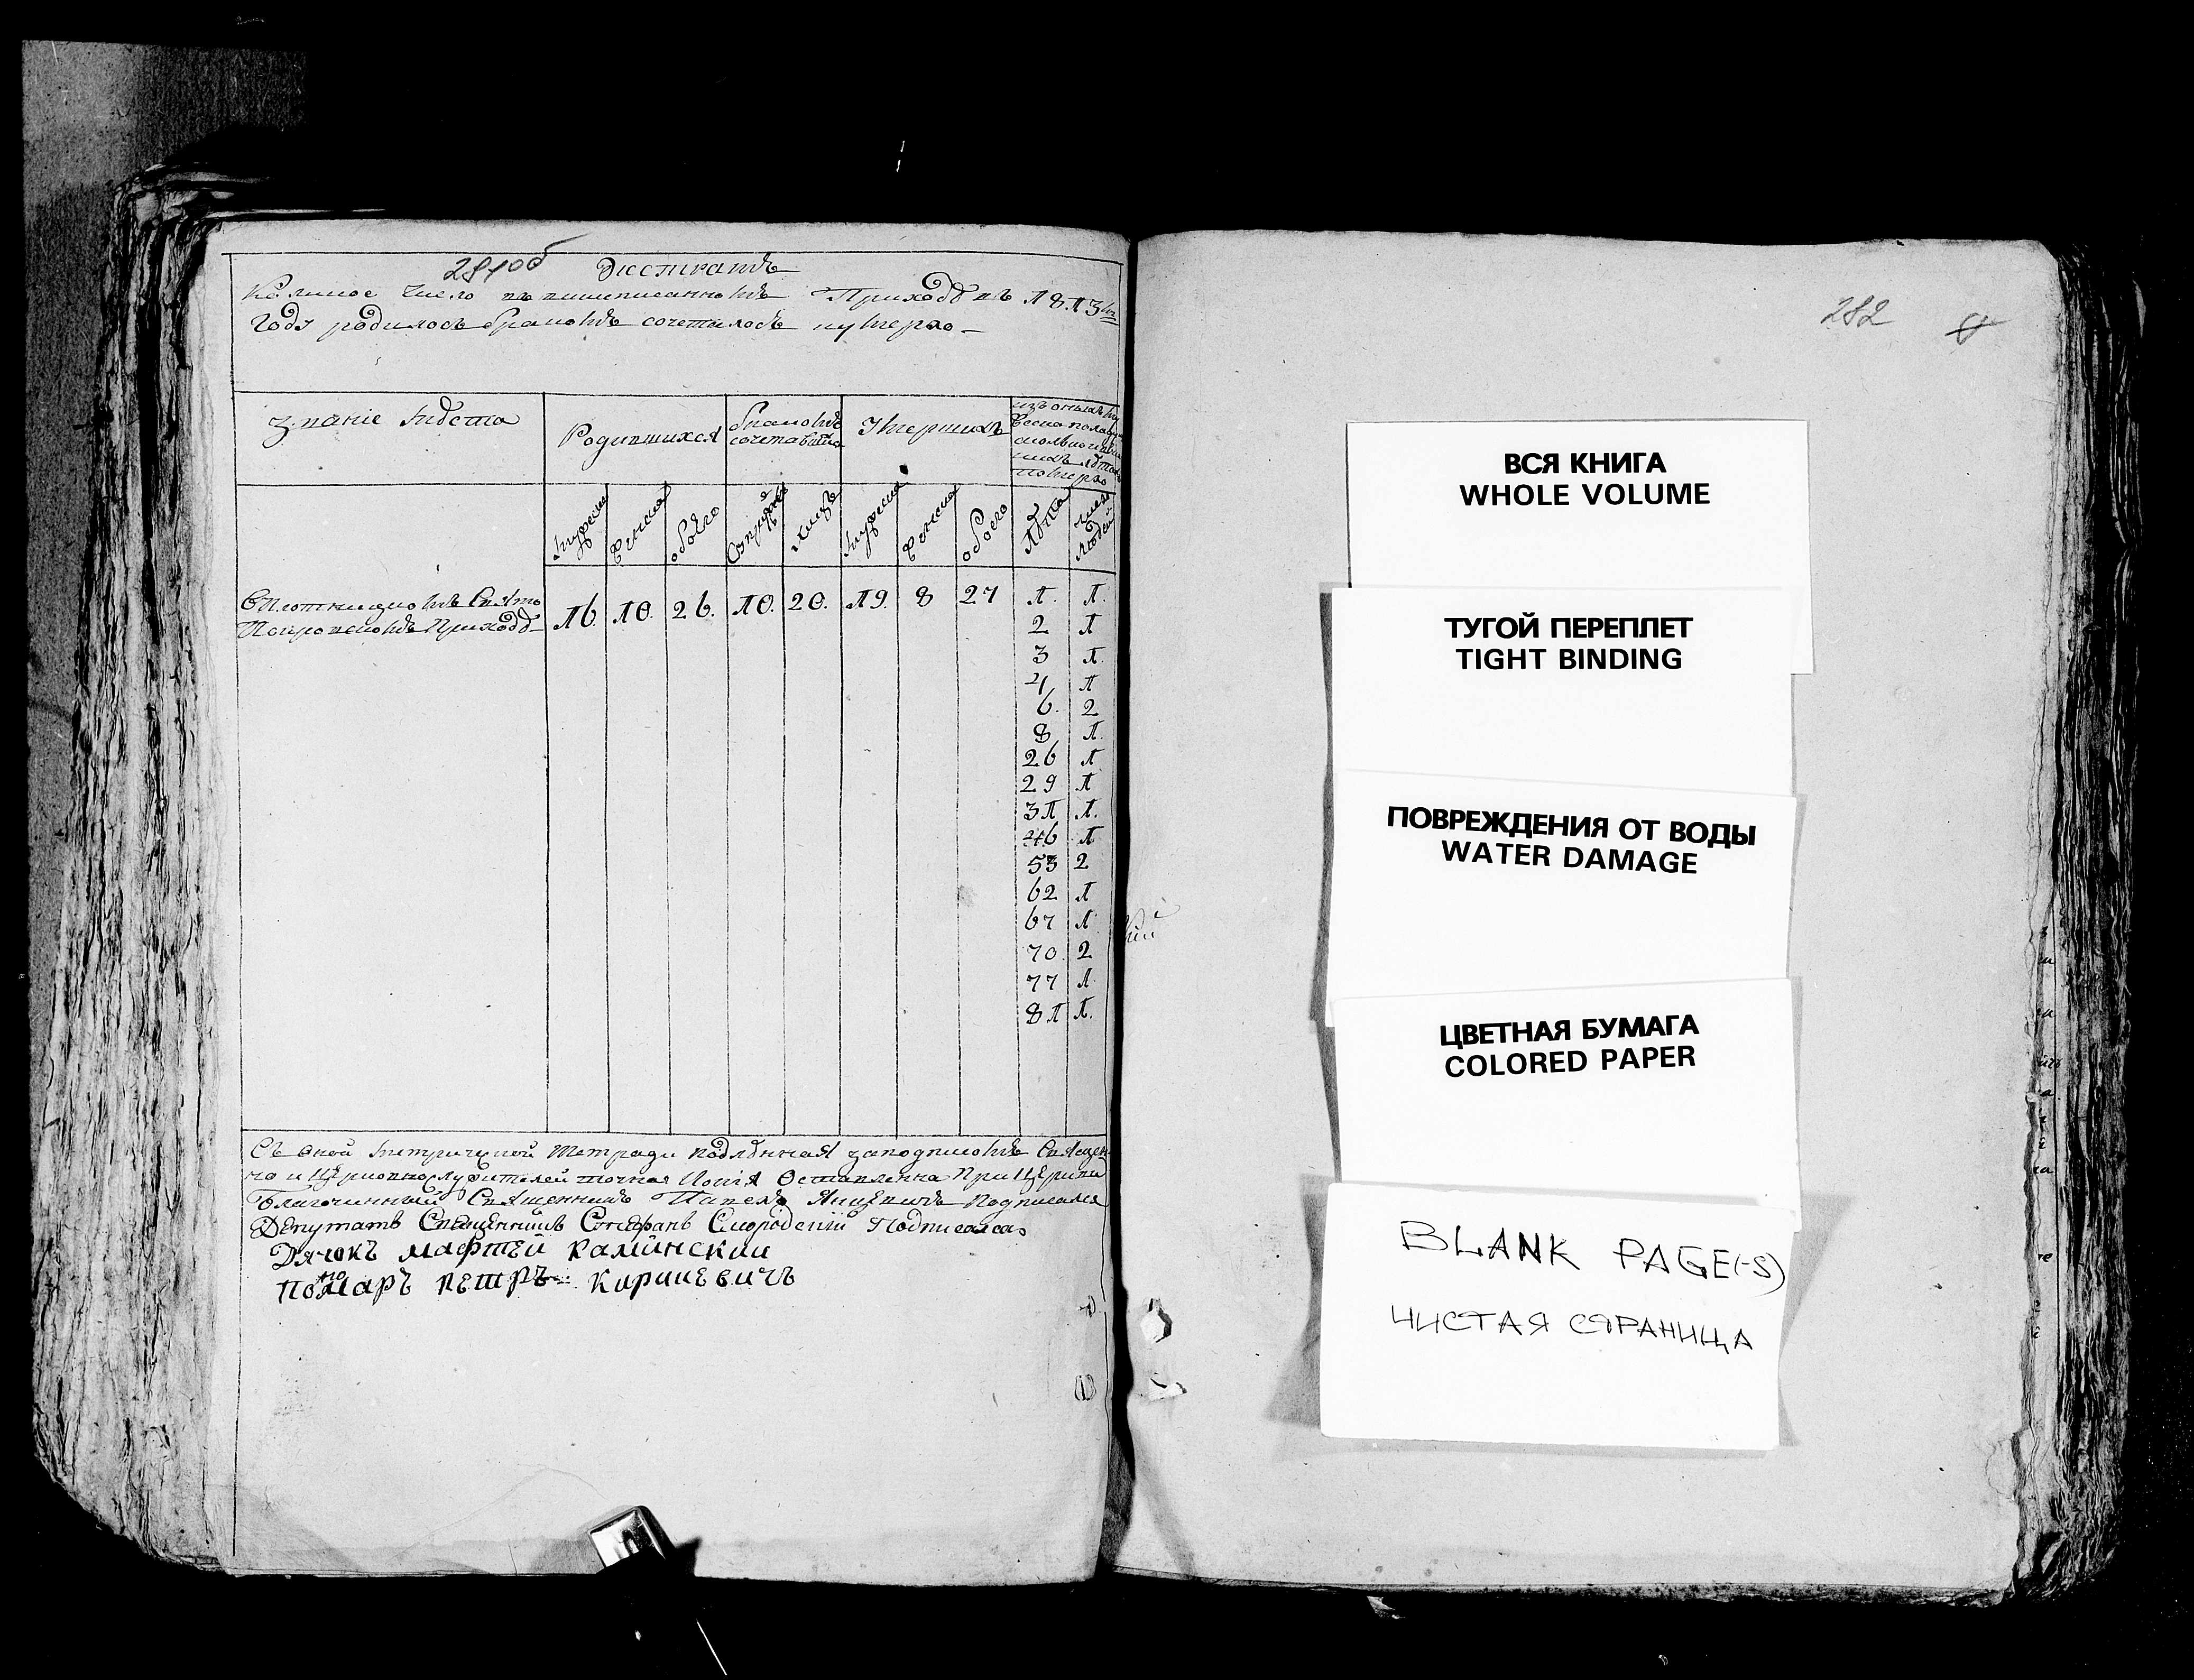 281 об
Экстрактъ
Коликое Число въ вишеписанномъ Приходѣ въ 1813м
Году родилось бракомъ сочеталось иумерло
Званіе мѣста
Родившихся
бракомъ
сочетавшихся
Умершихъ
изъ оныхъ
мужеска женска обоего мужеска женска обоего Лѣта число людей
Свято
Покровскомъ Приходѣ 16. 10. 26. 10. 20. 19. 8 27 1. 1.
2 1
3 1.
4 1
6. 2
8 1.
26 1
29 1
31 1.
46 1
53 2
62 1
67 1
70 2
77 1
81 1.
Съ оной метрической тетради подлѣнная заподписомъ Священ
но и Церковнослужителей точная Копія Оставленна При Церкви
Благочинный Священникъ Павелъ Подписался
Депутатъ Священникъ Стефанъ Подписался
Дячокъ мафтей камѣнский
Пономаръ петръ Кирицевичъ
282
ВСЯ КНИГА
WHOLE VOLUME
ТУГОЙ ПЕРЕПЛЕТ
TIGHT BINDING
ПОВРЕЖДЕНИЯ ОТ ВОДЫ
WATER DAMAGE
ЦВЕТНАЯ БУМАГА
COLORED PAPER
BLANK PAGE(-S)
ЧИСТАЯ СТРАНИЦА